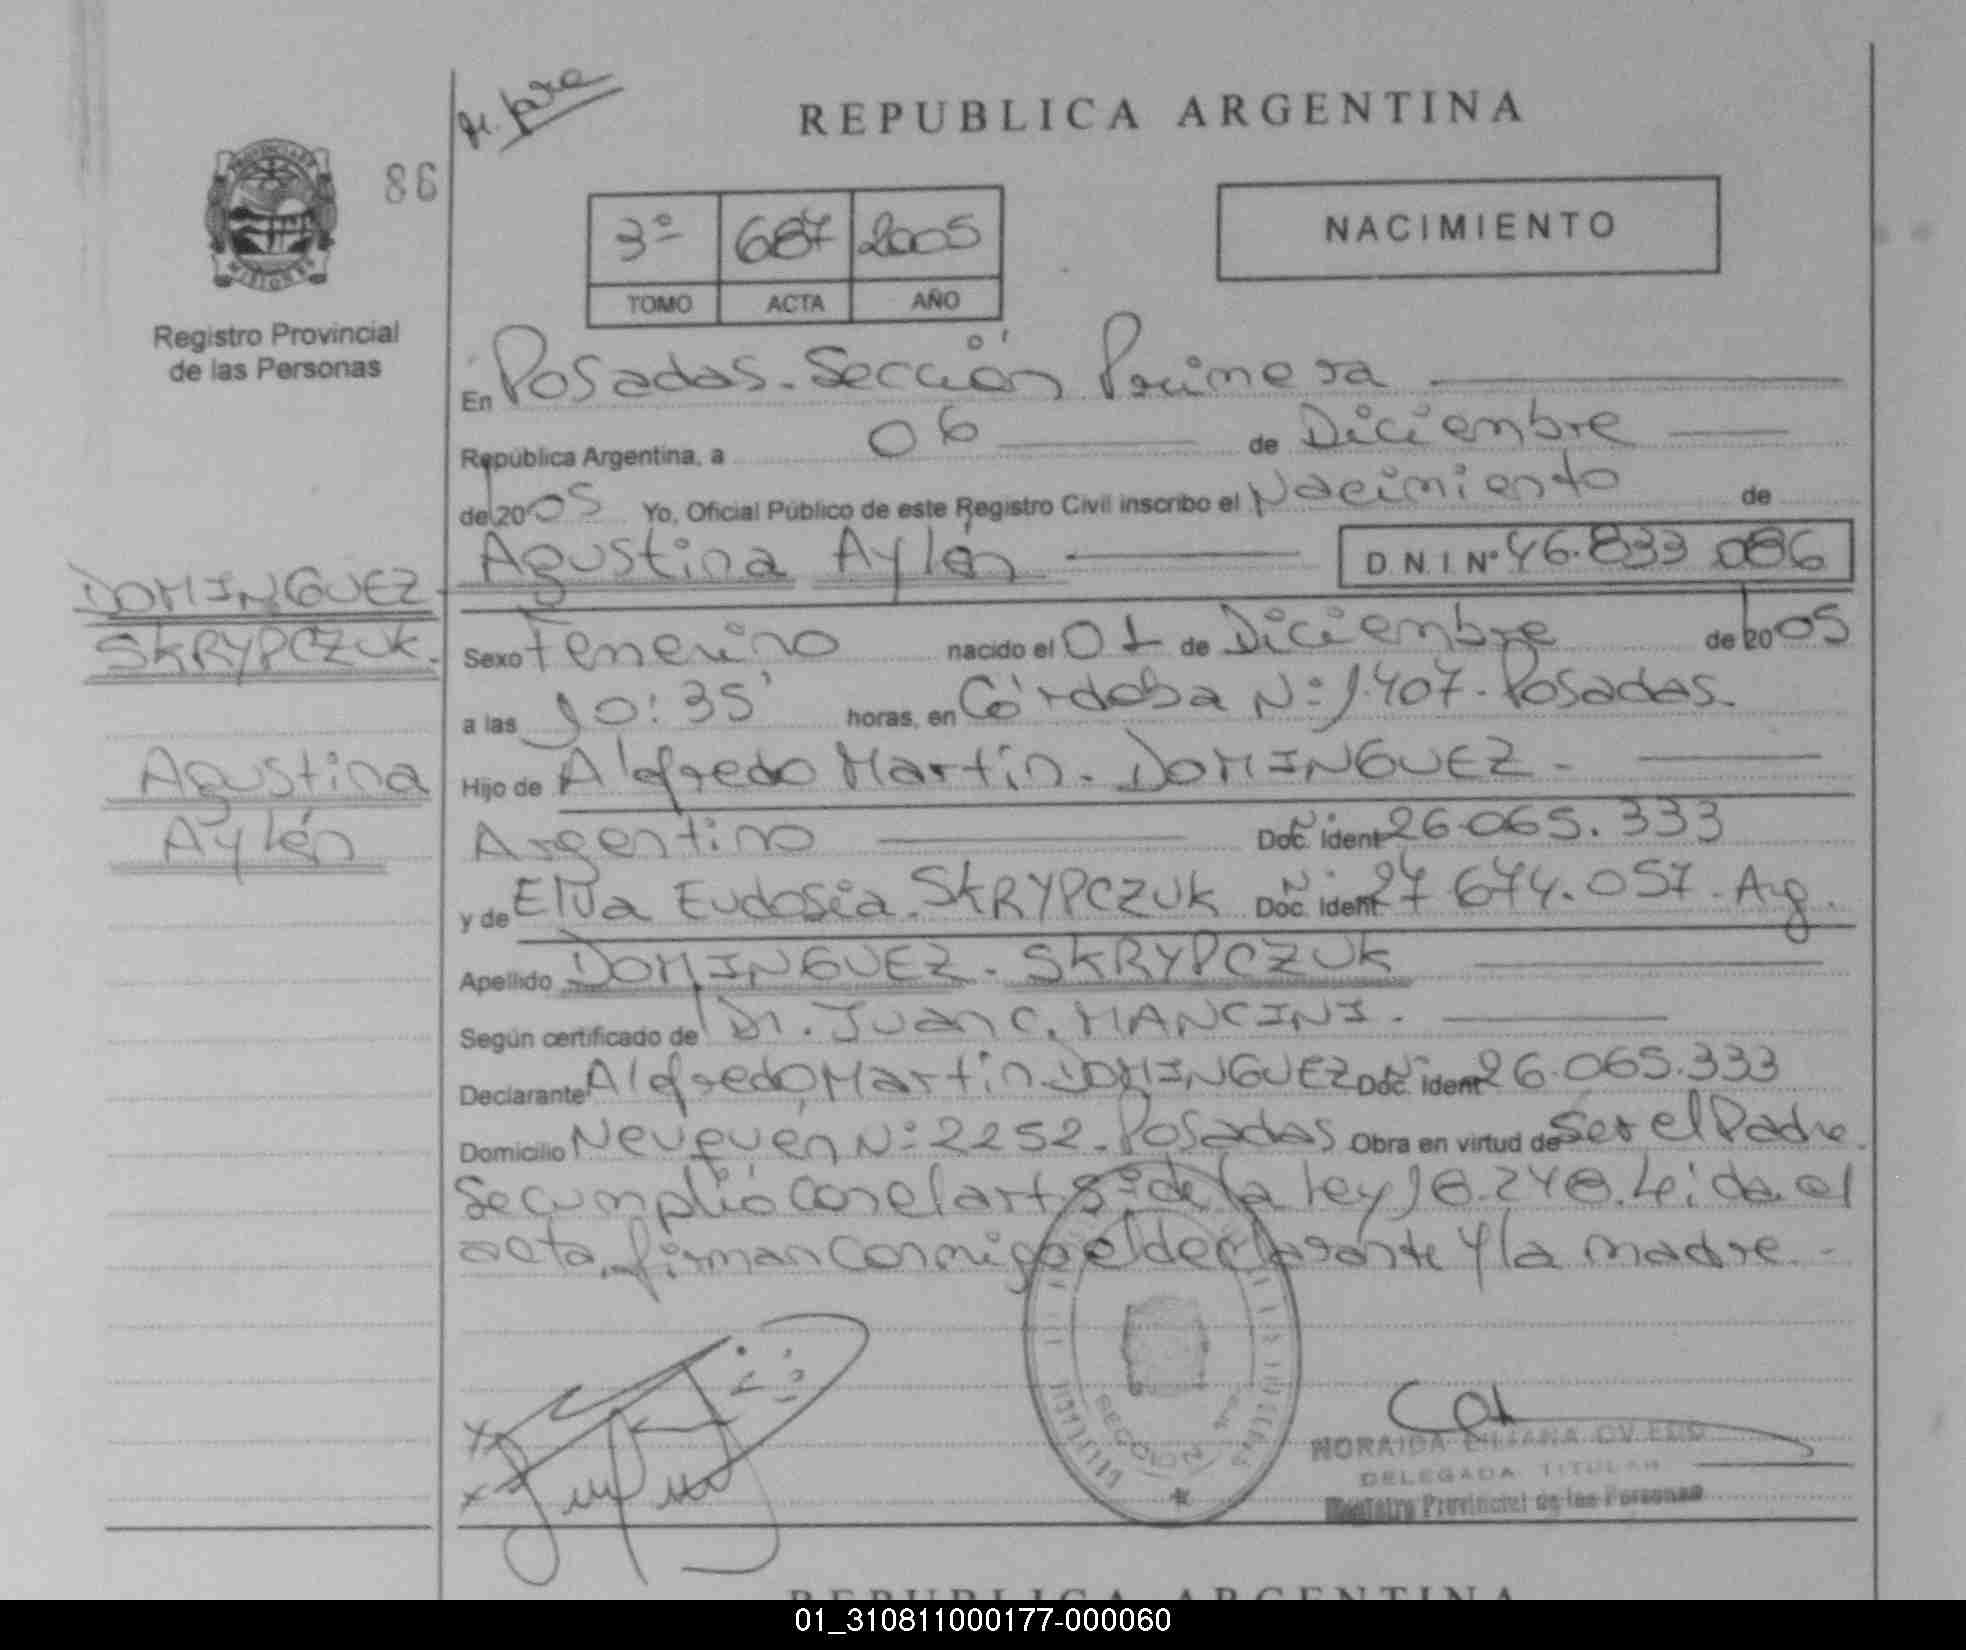 REPUBLICA ARGENTINA
PROVINCIA DE
MISIONES
86
3º 687 2005
TOMO ACTA AÑO
NACIMIENTO
Registro Provincial
de las Personas
En Posadas. Sección Primera
República Argentina, a 06 de Diciembre
del 2005 Yo, Oficial Público de este Registro Civil inscribo el Nacimiento de
Agustina Aylén D N I Nº 46.833 086
DOMINGUEZ
SKRYPCZUK.
Agustina
Aylén
Sexo Femenino nacido el 01 de Diciembre del 2005
a las 10:35' horas, en Córdoba Nº 1.407. Posadas.
Hijo de Alfredo Martín. DOMINGUEZ.
Argentino Doc. Ident. Nº 26.065.333
y de Elva Eudosia. SKRYPCZUK Doc. Ident. Nº 27 674.057. Arg.
Apellido DOMINGUEZ. SKRYPCZUK
Según certificado del Dr. Juan C. MANCINI.
Declarante Alfredo Martín DOMINGUEZ Doc. Ident. Nº 26.065.333
Domicilio Neuquén Nº 2252. Posadas Obra en virtud de Ser el Padre.
Se cumplió con el art 8º de la ley 18.248. Leída el
acta, firman conmigo el declarante y la madre.
SECCION
NORAIDA LILIANA OVIEDO
DELEGADA TITULAR
Registro Provincial de las Personas
REPUBLICA ARGENTINA
01_310811000177-000060